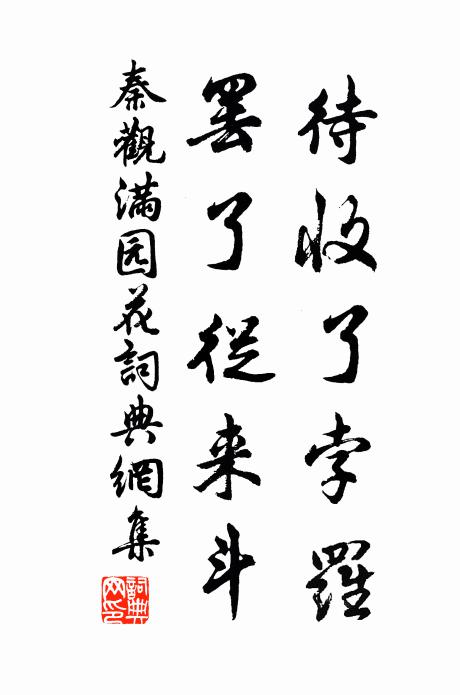 待收了孛羅
罷了從来斗
秦觀滿园花詞典網集
詞典网印